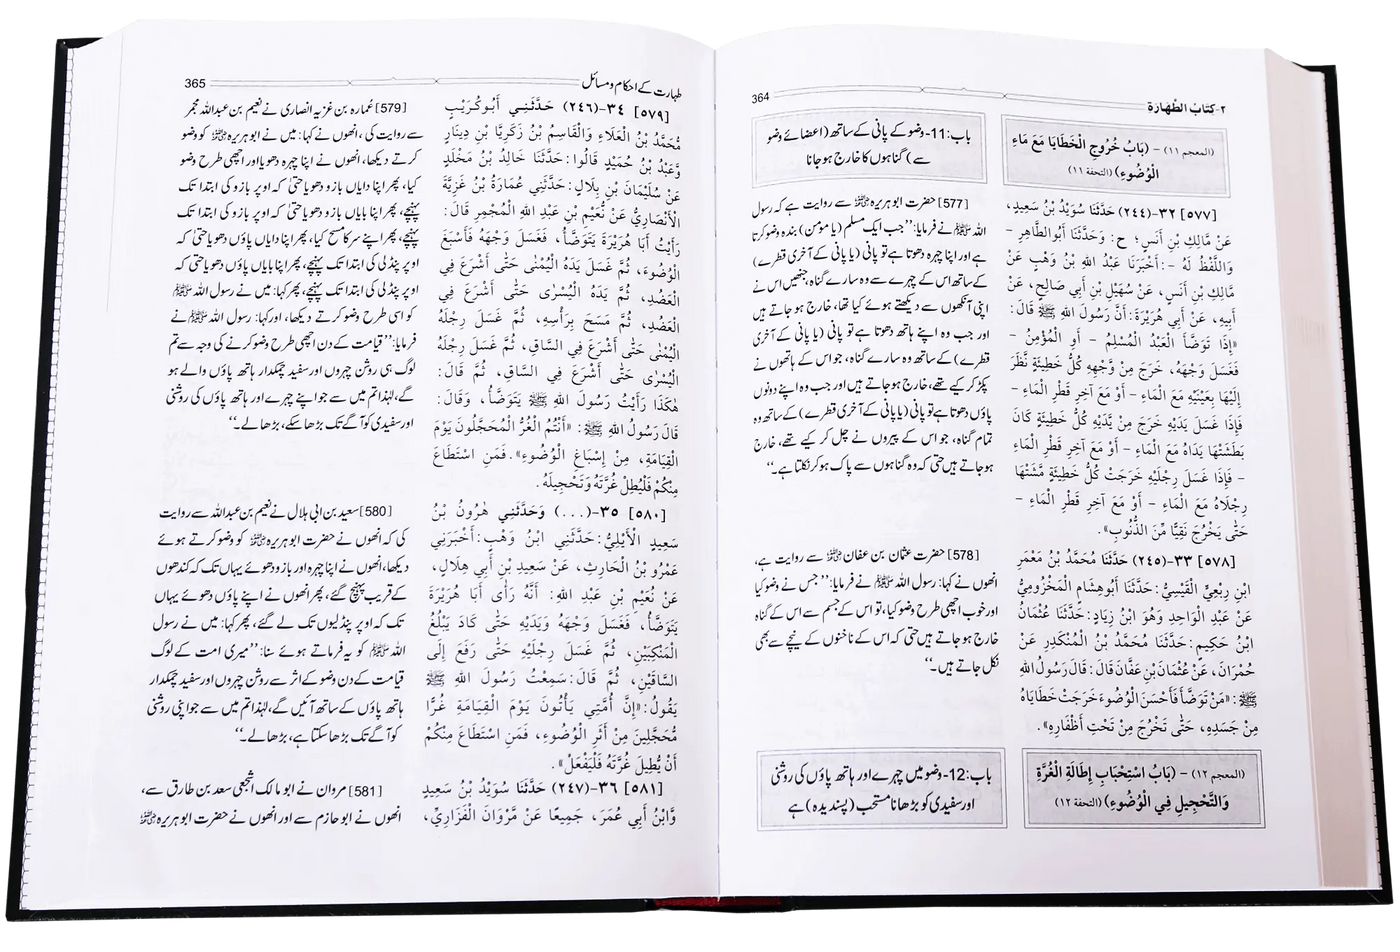 ٢-كِتَابُ الطَّهَارَةِ
364
(المعجم ١١) - (بَابُ خُرُوجِ الْخَطَايَا مَعَ مَاءِ
الْوُضُوءِ) (التحفة ١١)
[٥٧٧] ٣٢-(٢٤٤) حَدَّثَنَا سُوَيْدُ بْنُ سَعِيدٍ،
عَنْ مَالِكِ بْنِ أَنَسٍ؛ ح: وَحَدَّثَنَا أَبُو الطَّاهِرِ -
وَاللَّفْظُ لَهُ -: أَخْبَرَنَا عَبْدُ اللهِ بْنُ وَهْبٍ عَنْ
مَالِكِ بْنِ أَنَسٍ، عَنْ سُهَيْلِ بْنِ أَبِي صَالِحٍ، عَنْ
أَبِيهِ، عَنْ أَبِي هُرَيْرَةَ: أَنَّ رَسُولَ اللهِ ﷺ قَالَ:
«إِذَا تَوَضَّأَ الْعَبْدُ الْمُسْلِمُ - أَوِ الْمُؤْمِنُ -
فَغَسَلَ وَجْهَهُ، خَرَجَ مِنْ وَّجْهِهِ كُلُّ خَطِيئَةٍ نَّظَرَ
إِلَيْهَا بِعَيْنَيْهِ مَعَ الْمَاءِ - أَوْ مَعَ آخِرِ قَطْرِ الْمَاءِ -
فَإِذَا غَسَلَ يَدَيْهِ خَرَجَ مِنْ يَّدَيْهِ كُلُّ خَطِيئَةٍ كَانَ
بَطَشَتْهَا يَدَاهُ مَعَ الْمَاءِ - أَوْ مَعَ آخِرِ قَطْرِ الْمَاءِ
- فَإِذَا غَسَلَ رِجْلَيْهِ خَرَجَتْ كُلُّ خَطِيئَةٍ مَّشَتْهَا
رِجْلَاهُ مَعَ الْمَاءِ - أَوْ مَعَ آخِرِ قَطْرِ الْمَاءِ -
حَتَّى يَخْرُجَ نَقِيًّا مِّنَ الذُّنُوبِ».
[٥٧٨] ٣٣-(٢٤٥) حَدَّثَنَا مُحَمَّدُ بْنُ مَعْمَرِ
ابْنِ رِبْعِيٍّ الْقَيْسِيُّ: حَدَّثَنَا أَبُو هِشَامٍ الْمَخْزُومِيُّ
عَنْ عَبْدِ الْوَاحِدِ وَهُوَ ابْنُ زِيَادٍ: حَدَّثَنَا عُثْمَانُ
ابْنُ حَكِيمٍ: حَدَّثَنَا مُحَمَّدُ بْنُ الْمُنْكَدِرِ عَنْ
حُمْرَانَ، عَنْ عُثْمَانَ بْنِ عَفَّانَ قَالَ: قَالَ رَسُولُ اللهِ
ﷺ: «مَنْ تَوَضَّأَ فَأَحْسَنَ الْوُضُوءَ خَرَجَتْ خَطَايَاهُ
مِنْ جَسَدِهِ، حَتَّى تَخْرُجَ مِنْ تَحْتِ أَظْفَارِهِ».
(المعجم ١٢) - (بَابُ اسْتِحْبَابِ إِطَالَةِ الْغُرَّةِ
وَالتَّحْجِيلِ فِي الْوُضُوءِ) (التحفة ١٢)
باب:11- وضو کے پانی کے ساتھ (اعضائے وضو
سے) گناہوں کا خارج ہو جانا
[577] حضرت ابوہریرہ رضی اللہ عنہ سے روایت ہے کہ رسول
اللہ ﷺ نے فرمایا: ”جب ایک مسلم (یا مومن) بندہ وضو کرتا
ہے اور اپنا چہرہ دھوتا ہے تو پانی (یا پانی کے آخری قطرے)
کے ساتھ اس کے چہرے سے وہ سارے گناہ، جنھیں اس نے
اپنی آنکھوں سے دیکھتے ہوئے کیا تھا، خارج ہو جاتے ہیں
اور جب وہ اپنے ہاتھ دھوتا ہے تو پانی (یا پانی کے آخری
قطرے) کے ساتھ وہ سارے گناہ، جو اس کے ہاتھوں نے
پکڑ کر کیے تھے، خارج ہو جاتے ہیں اور جب وہ اپنے دونوں
پاؤں دھوتا ہے تو پانی (یا پانی کے آخری قطرے) کے ساتھ وہ
تمام گناہ، جو اس کے پیروں نے چل کر کیے تھے، خارج
ہو جاتے ہیں حتی کہ وہ گناہوں سے پاک ہو کر نکلتا ہے۔“
[578] حضرت عثمان بن عفان رضی اللہ عنہ سے روایت ہے،
انھوں نے کہا: رسول اللہ ﷺ نے فرمایا: ”جس نے وضو کیا
اور خوب اچھی طرح وضو کیا، تو اس کے جسم سے اس کے گناہ
خارج ہو جاتے ہیں حتی کہ اس کے ناخنوں کے نیچے سے بھی
نکل جاتے ہیں۔“
باب:12- وضو میں چہرے اور ہاتھ پاؤں کی روشنی
اور سفیدی کو بڑھانا مستحب (پسندیدہ) ہے
طہارت کے احکام و مسائل
365
[٥٧٩] ٣٤-(٢٤٦) حَدَّثَنِي أَبُو كُرَيْبٍ
مُحَمَّدُ بْنُ الْعَلَاءِ وَالْقَاسِمُ بْنُ زَكَرِيَّا بْنِ دِينَارٍ
وَّعَبْدُ بْنُ حُمَيْدٍ قَالُوا: حَدَّثَنَا خَالِدُ بْنُ مَخْلَدٍ
عَنْ سُلَيْمَانَ بْنِ بِلَالٍ: حَدَّثَنِي عُمَارَةُ بْنُ غَزِيَّةَ
الْأَنْصَارِيُّ عَنْ نُعَيْمِ بْنِ عَبْدِ اللهِ الْمُجْمِرِ قَالَ:
رَأَيْتُ أَبَا هُرَيْرَةَ يَتَوَضَّأُ، فَغَسَلَ وَجْهَهُ فَأَسْبَغَ
الْوُضُوءَ، ثُمَّ غَسَلَ يَدَهُ الْيُمْنٰى حَتَّى أَشْرَعَ فِي
الْعَضُدِ، ثُمَّ يَدَهُ الْيُسْرٰى حَتَّى أَشْرَعَ فِي
الْعَضُدِ، ثُمَّ مَسَحَ بِرَأْسِهِ، ثُمَّ غَسَلَ رِجْلَهُ
الْيُمْنٰى حَتَّى أَشْرَعَ فِي السَّاقِ، ثُمَّ غَسَلَ رِجْلَهُ
الْيُسْرٰى حَتَّى أَشْرَعَ فِي السَّاقِ، ثُمَّ قَالَ:
هٰكَذَا رَأَيْتُ رَسُولَ اللهِ ﷺ يَتَوَضَّأُ، وَقَالَ:
قَالَ رَسُولُ اللهِ ﷺ: «أَنْتُمُ الْغُرُّ الْمُحَجَّلُونَ يَوْمَ
الْقِيَامَةِ، مِنْ إِسْبَاغِ الْوُضُوءِ». فَمَنِ اسْتَطَاعَ
مِنْكُمْ فَلْيُطِلْ غُرَّتَهُ وَتَحْجِيلَهُ.
[٥٨٠] ٣٥-(...) وَحَدَّثَنِي هٰرُونُ بْنُ
سَعِيدٍ الْأَيْلِيُّ: حَدَّثَنِي ابْنُ وَهْبٍ: أَخْبَرَنِي
عَمْرُو بْنُ الْحَارِثِ، عَنْ سَعِيدِ بْنِ أَبِي هِلَالٍ،
عَنْ نُعَيْمِ بْنِ عَبْدِ اللهِ: أَنَّهُ رَأَى أَبَا هُرَيْرَةَ
يَتَوَضَّأُ، فَغَسَلَ وَجْهَهُ وَيَدَيْهِ حَتَّى كَادَ يَبْلُغُ
الْمَنْكِبَيْنِ، ثُمَّ غَسَلَ رِجْلَيْهِ حَتَّى رَفَعَ إِلَى
السَّاقَيْنِ، ثُمَّ قَالَ: سَمِعْتُ رَسُولَ اللهِ ﷺ
يَقُولُ: «إِنَّ أُمَّتِي يَأْتُونَ يَوْمَ الْقِيَامَةِ غُرًّا
مُّحَجَّلِينَ مِنْ أَثَرِ الْوُضُوءِ، فَمَنِ اسْتَطَاعَ مِنْكُمْ
أَنْ يُّطِيلَ غُرَّتَهُ فَلْيَفْعَلْ».
[٥٨١] ٣٦-(٢٤٧) حَدَّثَنَا سُوَيْدُ بْنُ سَعِيدٍ
وَّابْنُ أَبِي عُمَرَ، جَمِيعًا عَنْ مَّرْوَانَ الْفَزَارِيِّ،
[579] عُمارہ بن غزیہ انصاری نے نعیم بن عبداللہ مجمر
سے روایت کی، انھوں نے کہا: میں نے ابوہریرہ رضی اللہ عنہ کو وضو
کرتے دیکھا، انھوں نے اپنا چہرہ دھویا اور اچھی طرح وضو
کیا، پھر اپنا دایاں بازو دھویا حتی کہ اوپر بازو کی ابتدا تک
پہنچے، پھر اپنا بایاں بازو دھویا حتی کہ اوپر بازو کی ابتدا تک
پہنچے، پھر اپنے سر کا مسح کیا، پھر اپنا دایاں پاؤں دھویا حتی کہ
اوپر پنڈلی کی ابتدا تک پہنچے، پھر اپنا بایاں پاؤں دھویا حتی کہ
اوپر پنڈلی کی ابتدا تک پہنچے، پھر کہا: میں نے رسول اللہ ﷺ
کو اسی طرح وضو کرتے دیکھا، اور کہا: رسول اللہ ﷺ نے
فرمایا: ”قیامت کے دن اچھی طرح وضو کرنے کی وجہ سے تم
لوگ ہی روشن چہروں اور سفید چمکدار ہاتھ پاؤں والے ہو
گے، لہٰذا تم میں سے جو اپنے چہرے اور ہاتھ پاؤں کی روشنی
اور سفیدی کو آگے تک بڑھا سکے، بڑھا لے۔“
[580] سعید بن ابی ہلال نے نعیم بن عبداللہ سے روایت
کی کہ انھوں نے حضرت ابوہریرہ رضی اللہ عنہ کو وضو کرتے ہوئے
دیکھا، انھوں نے اپنا چہرہ اور بازو دھوئے یہاں تک کہ کندھوں
کے قریب پہنچ گئے، پھر انھوں نے اپنے پاؤں دھوئے یہاں
تک کہ اوپر پنڈلیوں تک لے گئے، پھر کہا: میں نے رسول
اللہ ﷺ کو یہ فرماتے ہوئے سنا: ”میری امت کے لوگ
قیامت کے دن وضو کے اثر سے روشن چہروں اور سفید چمکدار
ہاتھ پاؤں کے ساتھ آئیں گے، لہٰذا تم میں سے جو اپنی روشنی
کو آگے تک بڑھا سکتا ہے، بڑھا لے۔“
[581] مروان نے ابو مالک اشجعی سعد بن طارق سے،
انھوں نے ابو حازم سے اور انھوں نے حضرت ابوہریرہ رضی اللہ عنہ